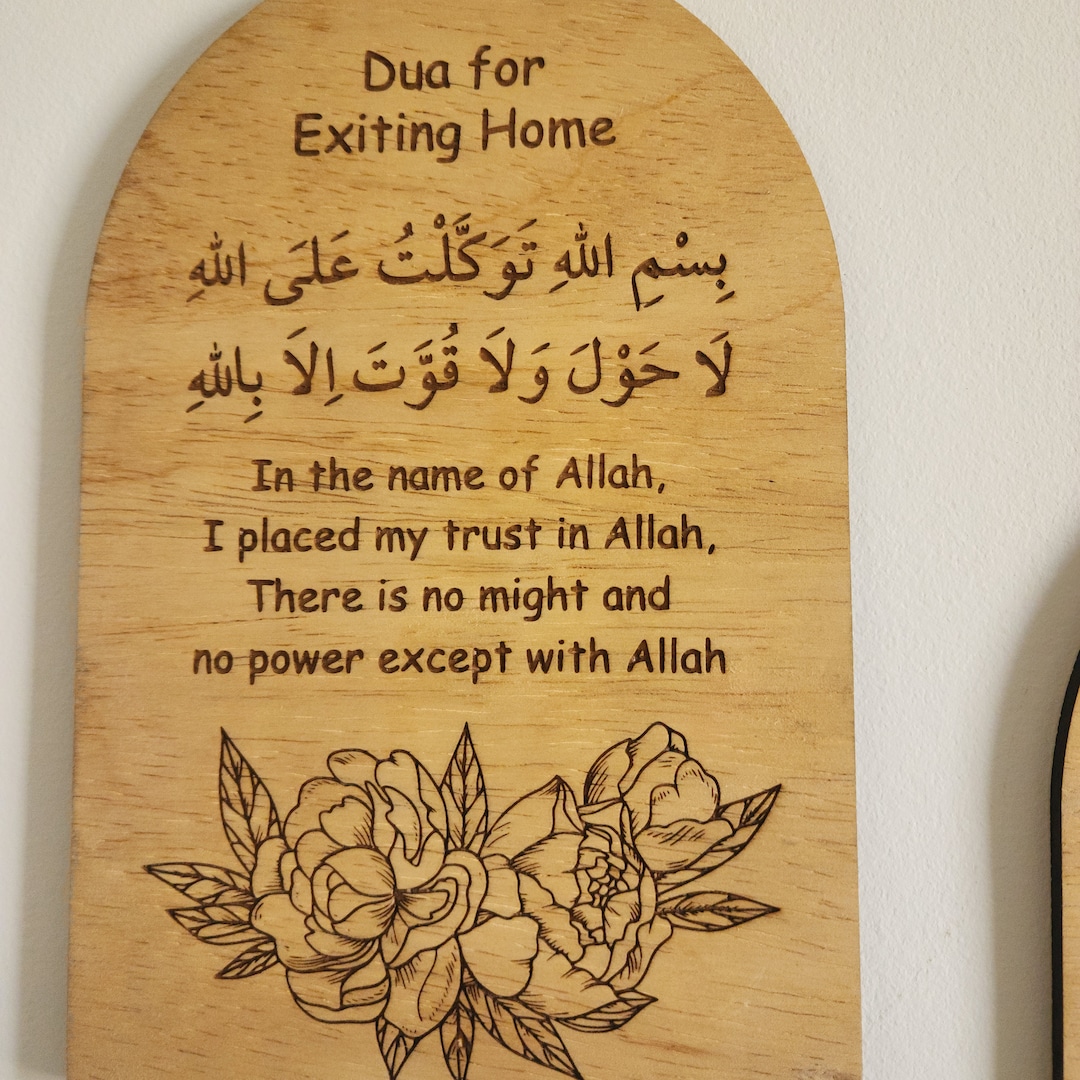 Dua for
Exiting Home
بِسْمِ اللهِ تَوَكَّلْتُ عَلَى اللهِ
لَا حَوْلَ وَلَا قُوَّتَ اِلاَ بِاللهِ
In the name of Allah,
I placed my trust in Allah,
There is no might and
no power except with Allah